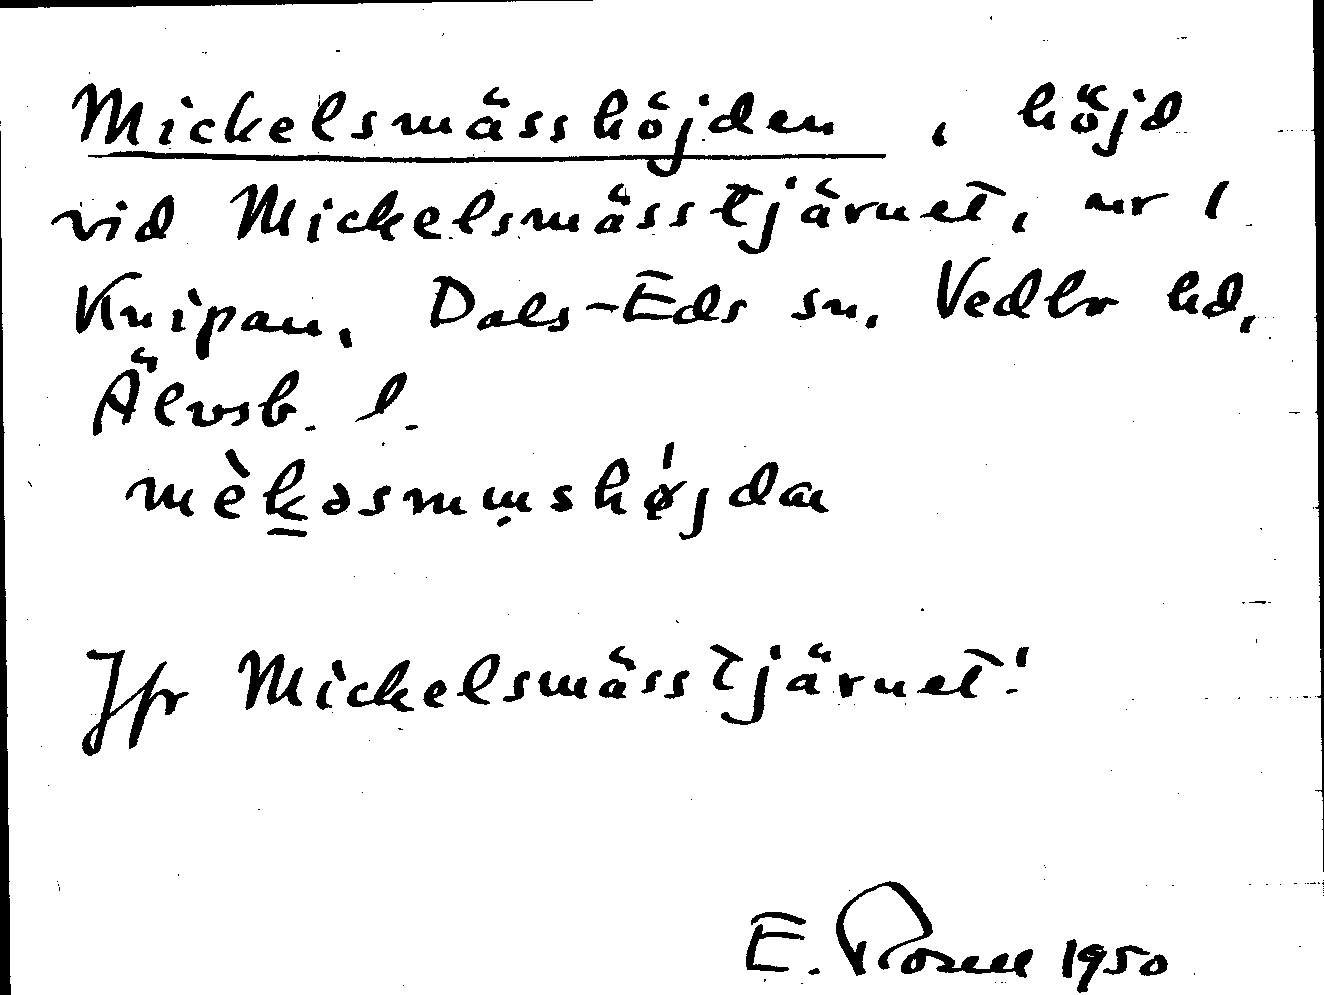 Mickelsmässhöjden, höjd
vid Mickelsmässtjärnet, nr 1
Knipan, Dals-Eds sn, Vedbo hd,
Älvsb. l.
Jfr Mickelsmässtjärnet!
E. Rosell 1950